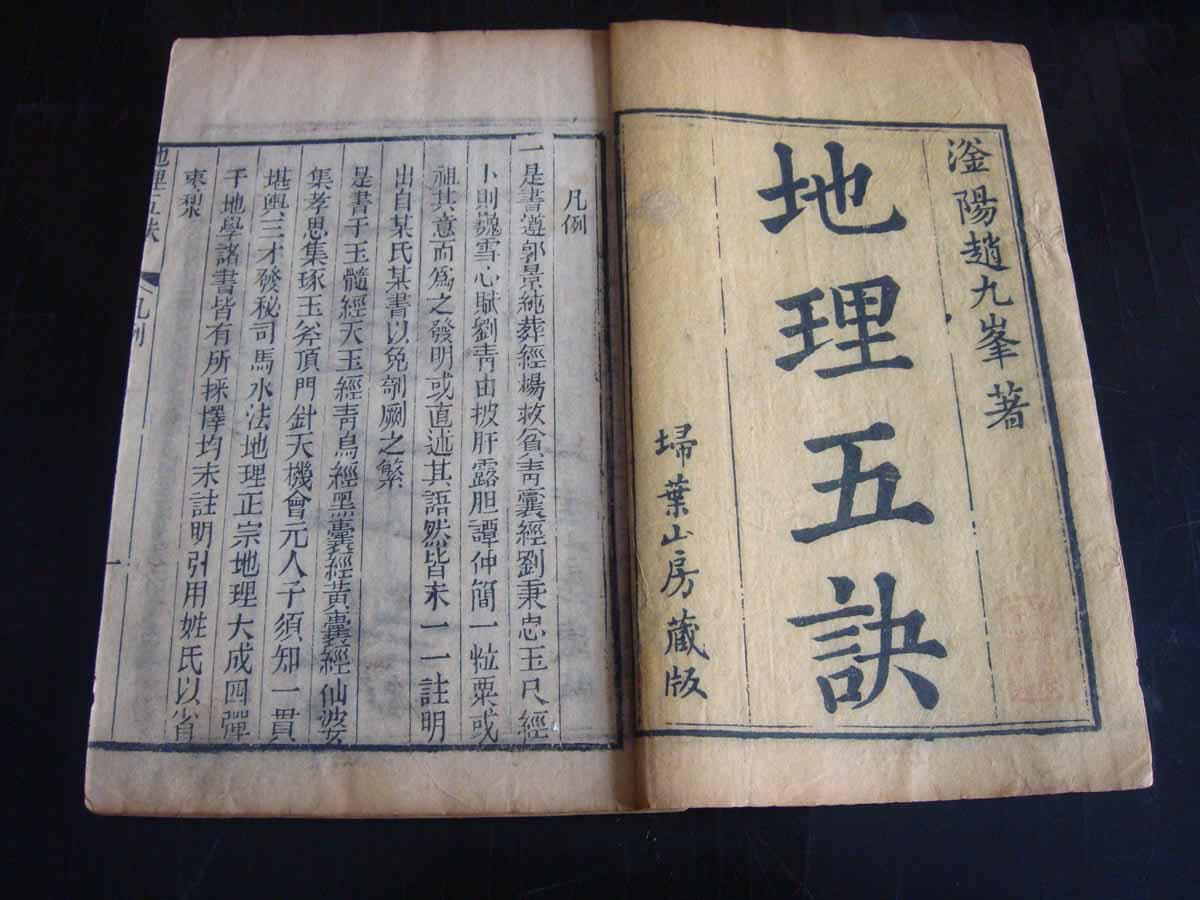 滏陽趙九峯著
地理五訣
埽葉山房藏版
凡例
一是書遵郭景純葬經楊救貧靑囊經劉秉忠玉尺經
卜則巍雪心賦劉靑田披肝露胆譚仲簡一粒粟或
祖其意而爲之發明或直述其語然皆未一一註明
出自某氏某書以免剞劂之繁
是書于玉髓經天玉經靑烏經黑囊經黃囊經仙婆
集孝思集琢玉斧頂門針天機會元人子須知一貫
堪輿三才發秘司馬水法地理正宗地理大成四彈
子地學諸書皆有所採擇均未註明引用姓氏以省
棗梨
地理五訣 凡例 一